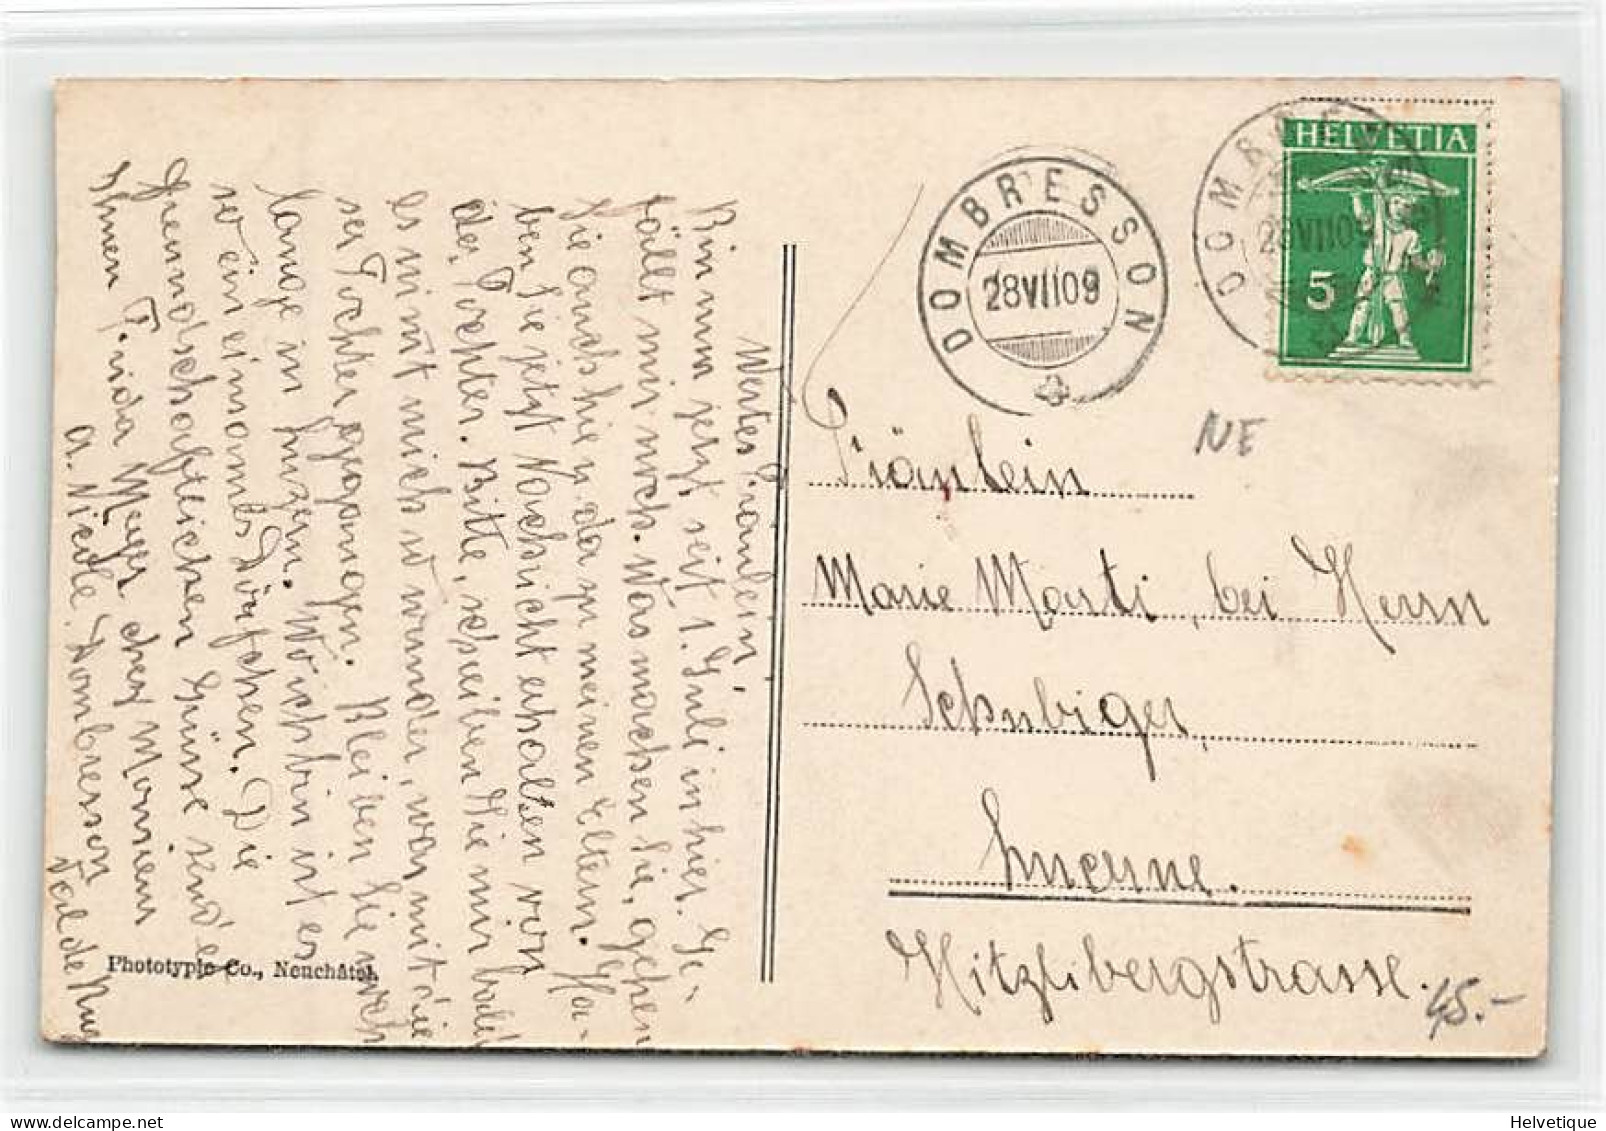 Wertes Fräulein,
Bin nun jetzt seit 1. Juli in hier. Ge-
fällt mir noch. Was machen Sie, gehen
Sie auch hie u da zu meinen Eltern. Ha-
ben Sie jetzt Nachricht erhalten von
der Tochter. Bitte, schreiben Sie mir bald
es nimt mich so wunder, was mit die
ser Tochter gegangen. Bleiben Sie noch
lange in Luzern. Wo ich bin ist es
so ein einsames Dörfchen. Die
freundschaftlichen Grüsse send e
Ihnen Frida Meyer chez Monsieur
A. Nicole Dombresson
Val de Ruz
Phototypie Co., Neuchâtel
DOMBRESSON
28 VII 09
DOMBRESSON
28 VII 09
HELVETIA
5
NE
Fräulein
Marie Marti, bei Herrn
Schubiger,
Lucerne.
Hitzlibergstrasse.
45.-
Helvetique